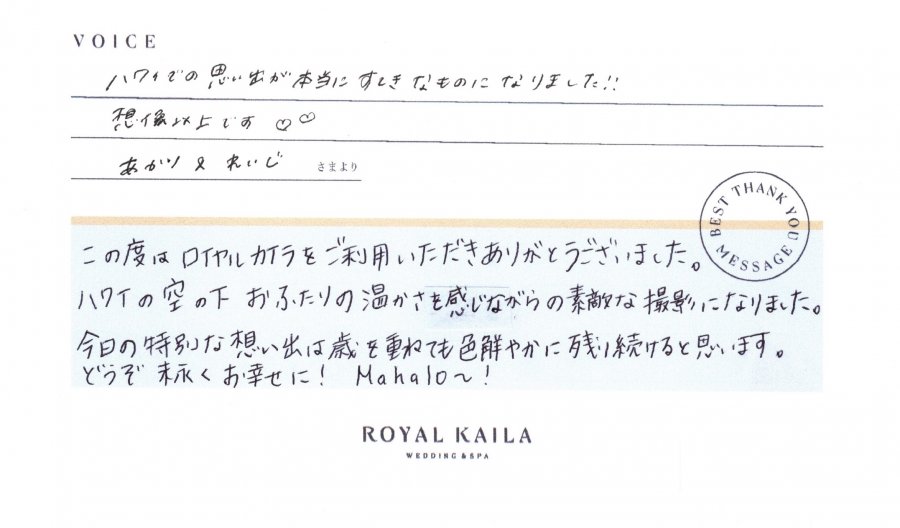 VOICE
ハワイでの思い出が本当にすてきなものになりました!!
想像以上です ♡♡
あかり & れいじ さまより
BEST THANK YOU MESSAGE
この度はロイヤルカイラをご利用いただきありがとうございました。
ハワイの空の下 おふたりの温かさを感じながらの素敵な撮影になりました。
今日の特別な想い出は歳を重ねても色鮮やかに残り続けると思います。
どうぞ末永くお幸せに! Mahalo〜!
ROYAL KAILA
WEDDING & SPA